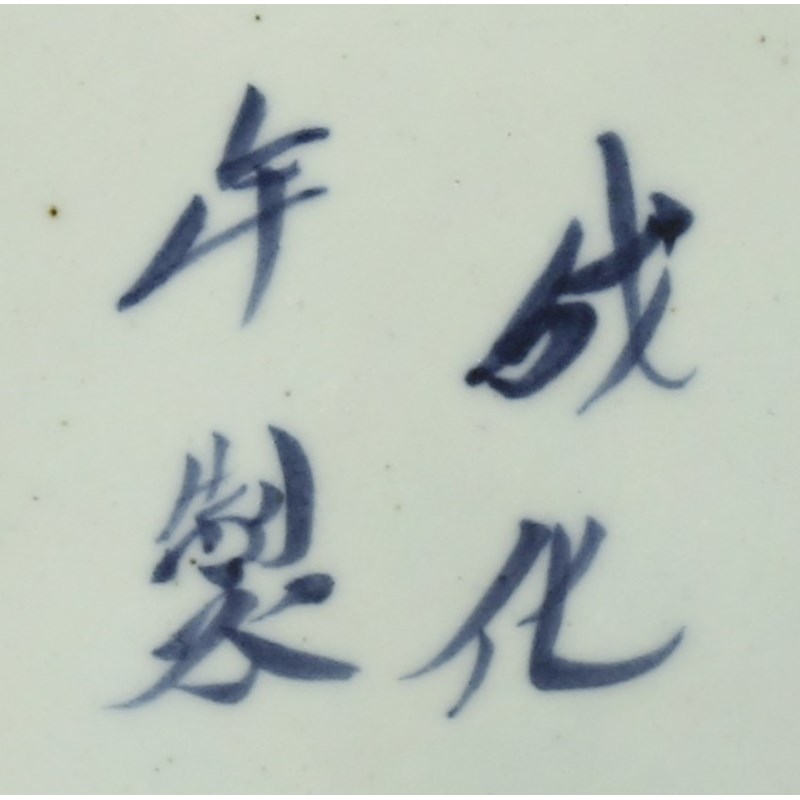 成化
年製